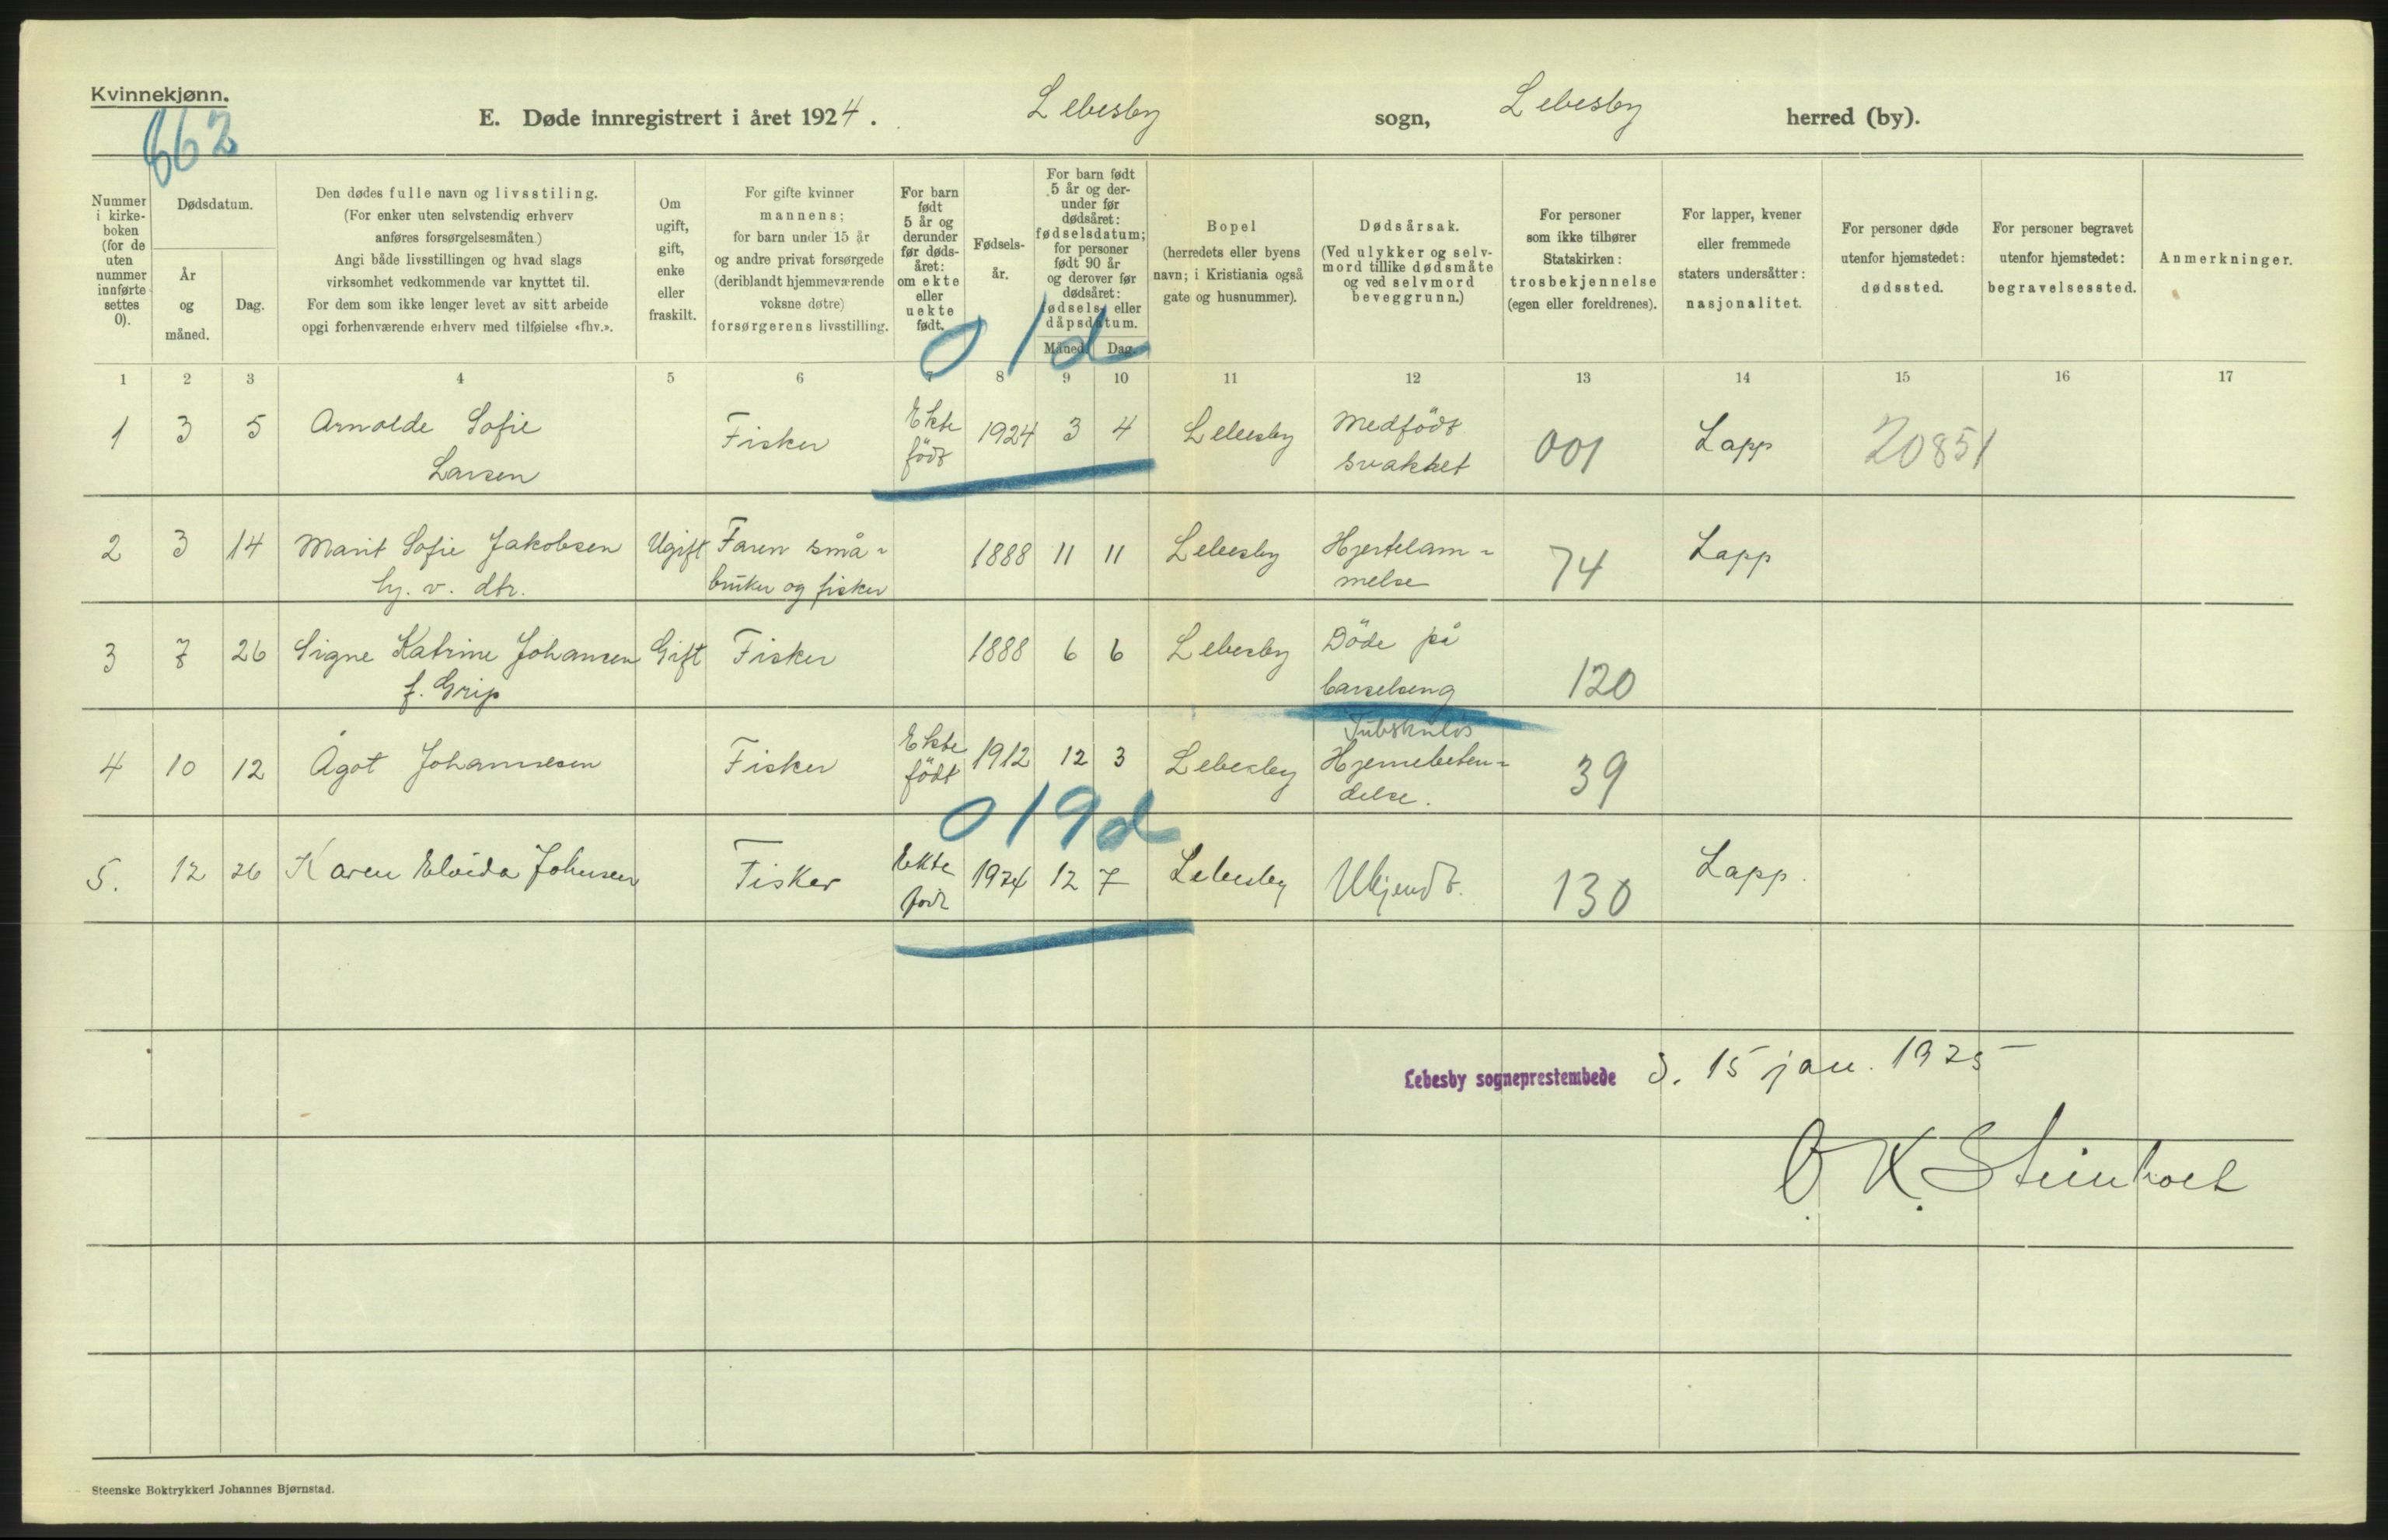 Kvinnekjønn.
662
E. Døde innregistrert i året 1924. Lebesby sogn, Lebesby herred (by).
Nummer
i kirke-
boken
(for de
uten
nummer
innførte
settes
0).
Dødsdatum.
År
og
måned.
Dag.
Den dødes fulle navn og livsstiling.
(For enker uten selvstendig erhverv
anføres forsørgelsesmåten.)
Angi både livsstillingen og hvad slags
virksomhet vedkommende var knyttet til.
For dem som ikke lenger levet av sitt arbeide
opgi forhenværende erhverv med tilføielse «fhv.».
Om
ugift,
gift,
enke
eller
fraskilt.
For gifte kvinner
mannens;
for barn under 15 år
og andre privat forsørgede
(deriblandt hjemmeværende
voksne døtre)
forsørgerens livsstilling.
For barn
født
5 år og
derunder
før døds-
året:
om ekte
eller
uekte
født.
Fødsels-
år.
For barn født
5 år og der-
under før
dødsåret:
fødselsdatum;
for personer
født 90 år
og derover før
dødsåret:
fødsels- eller
dåpsdatum.
Måned.
Dag.
Bopel
(herredets eller byens
navn; i Kristiania også
gate og husnummer).
Dødsårsak.
(Ved ulykker og selv-
mord tillike dødsmåte
og ved selvmord
beveggrunn.)
For personer
som ikke tilhører
Statskirken:
trosbekjennelse
(egen eller foreldrenes).
For lapper, kvener
eller fremmede
staters undersåtter:
nasjonalitet.
For personer døde
utenfor hjemstedet:
dødssted.
For personer begravet
utenfor hjemstedet:
begravelsessted.
Anmerkninger.
1 2 3 4 5 6 7 8 9 10 11 12 13 14 15 16 17
01d
1 3 5 Arnolde Sofie Fisker Ekte 1924 3 4 Lebesby Medfödt 001 Lapp 20851
Larsen födt svakhet
2 3 14 Marit Sofie Jakobsen Ugift Faren små- 1888 11 11 Lebesby Hjertelam- 74 Lapp
hj. v. dtr. bruker og fisker melse
3 7 26 Signe Katrine Johansen Gift Fisker 1888 6 6 Lebesby Döde på 120
f. Grip barselseng
Tuberkulös
4 10 12 Ågot Johannesen Fisker Ekte 1912 12 3 Lebesby Hjernebeten- 39
födt delse.
019d
5. 12 26 Karen Elvida Johnsen Fisker Ekte 1924 12 7 Lebesby Ukjendt. 130 Lapp.
født
Lebesby sogneprestembede d. 15 jan. 1925
O. K. Steinholt
Steenske Boktrykkeri Johannes Bjørnstad.